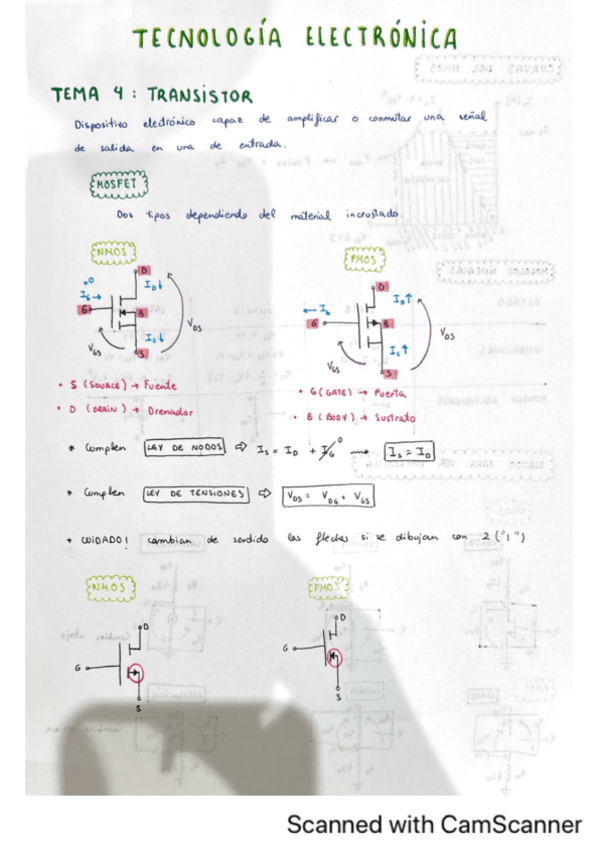 TECNOLOGÍA ELECTRÓNICA
TEMA 4 : TRANSISTOR
Dispositivo eledrónico capaz de amplificar o conmutar una señal
de salida en una de entrada.
MOSFET
Dos tipos dependiendo del material incrustado.
NMOS
PMOS
D
I_D↓
I_G→
G
B
V_DS
I_S↓
V_GS
S
D
I_D↑
← I_G
G
B
V_DS
I_S↑
V_GS
S
• S (SOURCE) → Fuente
• G (GATE) → Puerta
• D (DRAIN) → Drenador
• B (BODY) → Sustrato
* Cumplen LEY DE NODOS ⇨ I_S = I_D + I_G⁰ ⟿ I_S = I_D
* Cumplen LEY DE TENSIONES ⇨ V_DS = V_DG + V_GS
* CUIDADO! cambian de sentido las flechas si se dibujan con 2 ("|")
NMOS
PMOS
D
G
S
D
G
S
Scanned with CamScanner